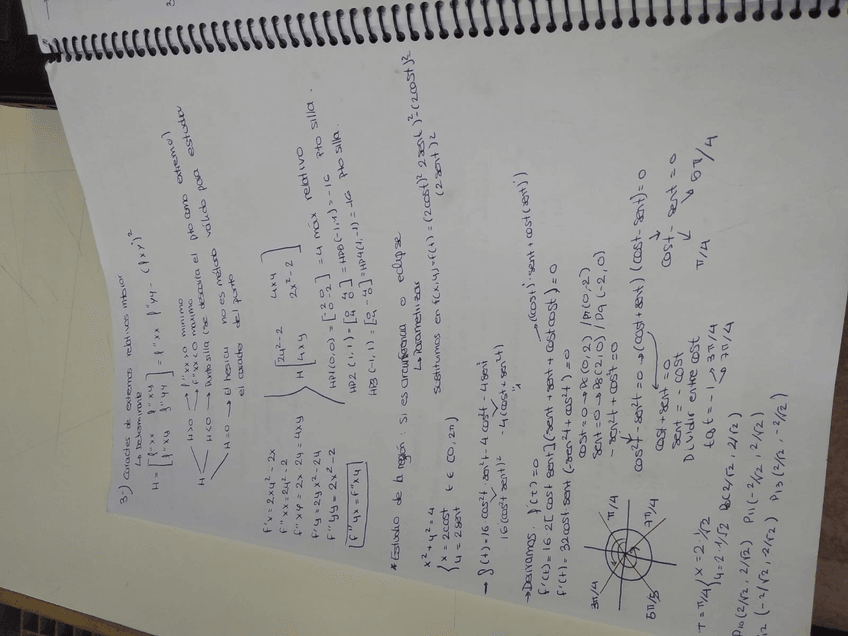 3-) Caracter de extremos relativos interior
↳ Determinante
H = [f''xx f''xy / f''xy f''yy] = f''xx · f''yy - (f''xy)²
H>0 → f''xx>0 mínimo
→ f''xx<0 máximo
H<0 → Punto silla (se descarta el pto como extremo)
H=0 → El hessiano no es método válido para estudiar
el caracter del punto
f'x = 2xy² - 2x
f''xx = 2y² - 2
f''xy = 2x · 2y = 4xy
f'y = 2yx² - 2y
f''yy = 2x² - 2
f''yx = f''xy
H [2y²-2 4xy / 4xy 2x²-2]
HP1(0,0) = [-2 0 / 0 -2] = 4 máx relativo
HP2(1,1) = [0 4 / 4 0] = HP5(-1,-1) = -16 pto silla.
HP3(-1,1) = [0 -4 / -4 0] = HP4(1,-1) = -16 pto silla.
* Estudio de la región si es circunferencia o eclipse
↳ Parametrizar
x² + y² = 4
{x = 2cost
y = 2sent t ∈ (0, 2π)
sustituimos en f(x,y) = f(t) = (2cost)² · (2sent)² - (2cost)²
- (2sent)²
→ f(t) = 16 cos²t · sen²t - 4 cos²t - 4sen²t
16(cost · sent)² - 4(cos²t + sen²t)
1
→ Derivamos. f'(t) = 0
→ (cost)' · sent + cost(sent)')
f'(t) = 16 · 2[cost · sent](-sent · sent + cost · cost) = 0
f'(t) = 32cost · sent(-sen²t + cos²t) = 0
cost = 0 → P6(0,2) / P7(0,-2)
sent = 0 → P8(2,0) / P9(-2,0)
-sen²t + cos²t = 0
cos²t - sen²t = 0 → (cost + sent)(cost - sent) = 0
cost + sent = 0
sent = -cost
Dividir entre cost
tgt = -1 → 3π/4
→ 7π/4
cost - sent = 0
π/4 5π/4
3π/4 π/4
5π/5 7π/4
T = π/4 {x = 2 · 1/√2
y = 2 · 1/√2 P10(2/√2, 2/√2)
P10(2/√2, 2/√2) P11(-2/√2, 2/√2)
12(-2/√2, -2/√2) P13(2/√2, -2/√2)